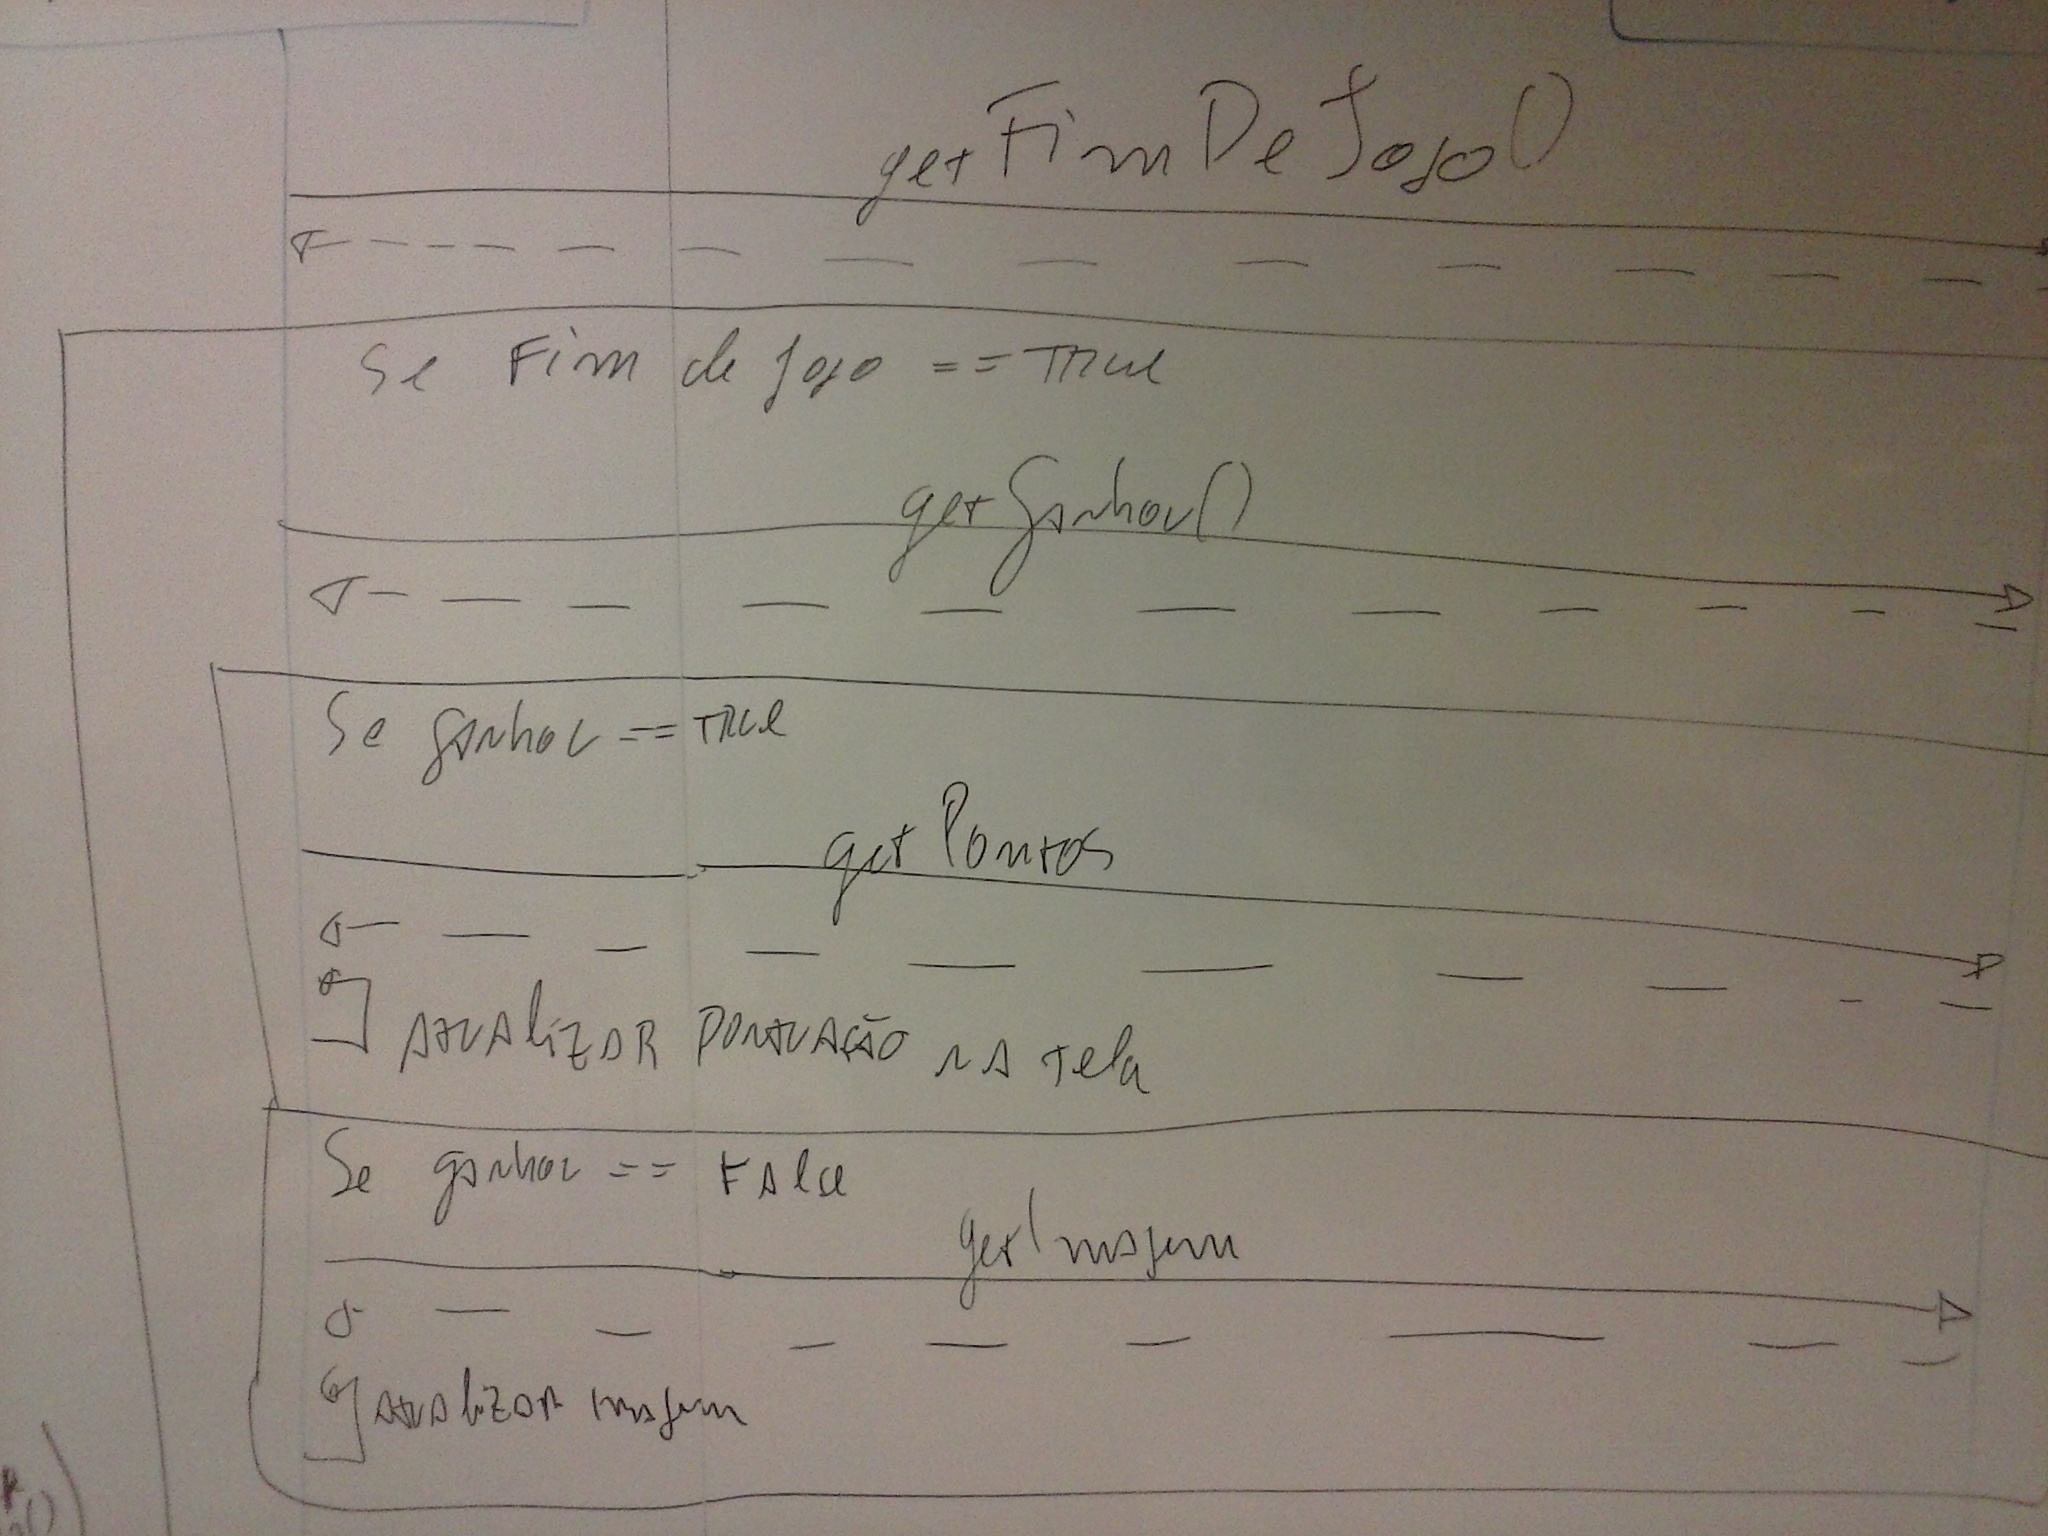 getFimDeJogo()
Se Fim de jogo == TRUe
getGanhou()
Se ganhou == TRUe
getPontos
AtUAlizAR PONtUAção NA tela
Se ganhou == FAlse
getImagem
AtUAlizAR imagem